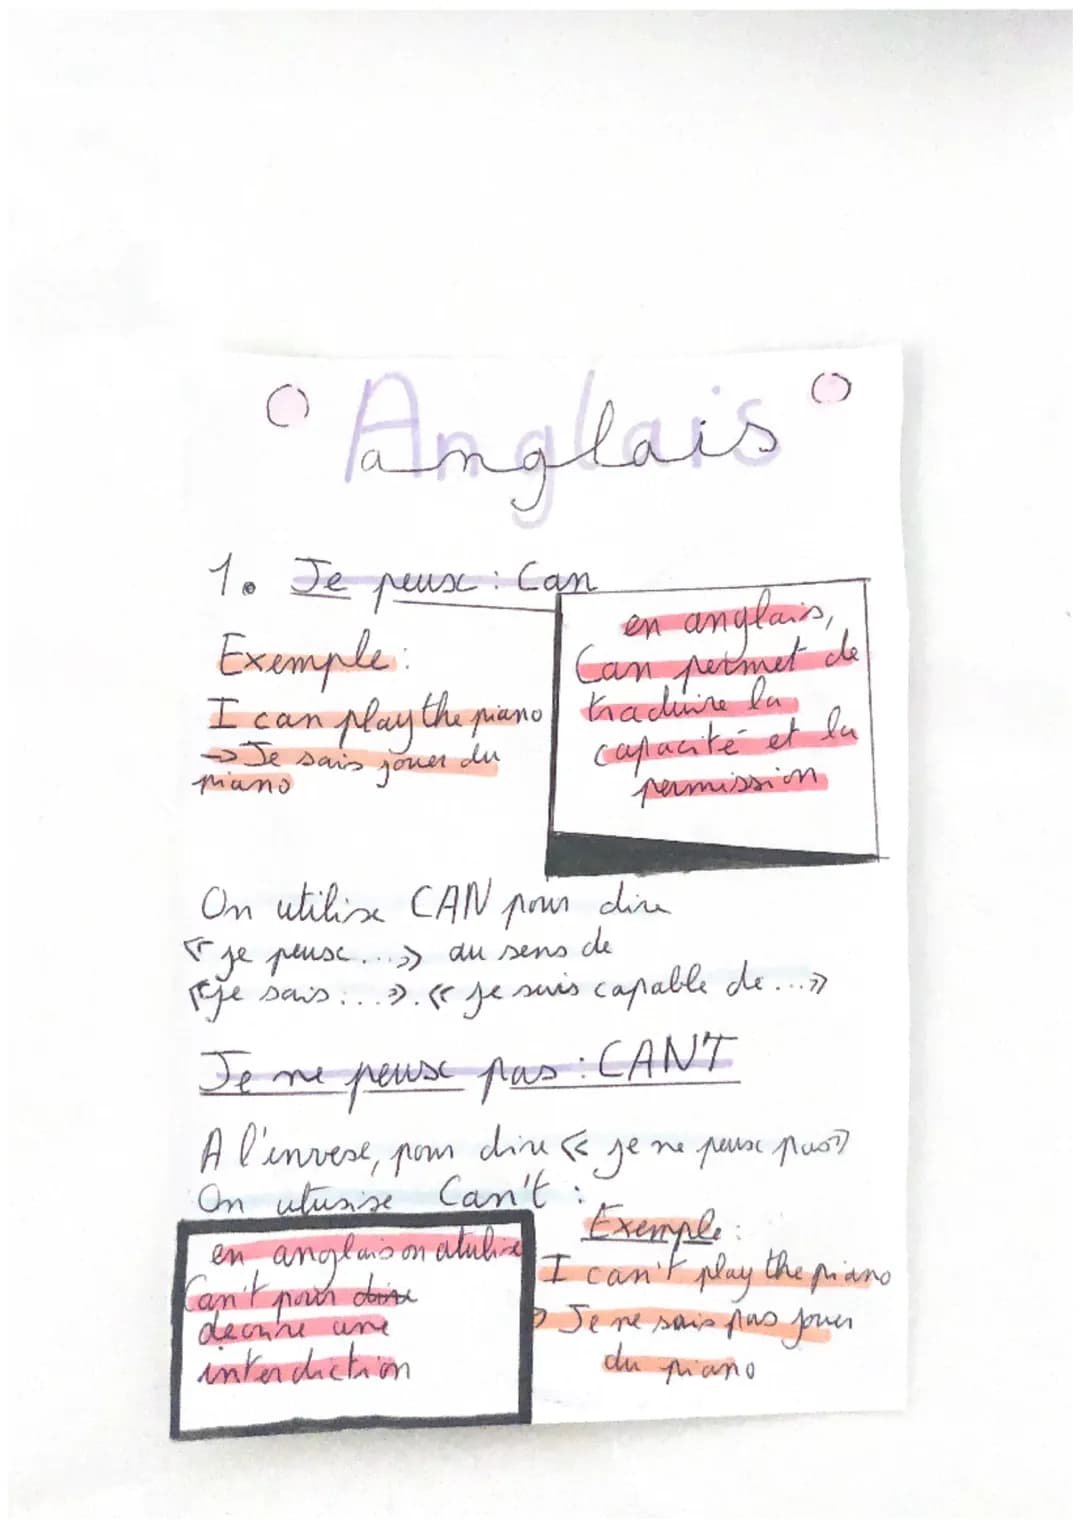 Anglais
anglais
1. Je peux : Can
Exemple :
I can play the piano
→ Je sais jouer du
piano
en anglais,
Can permet de
traduire la
capacité et la
permission
On utilise CAN pour dire
« je peux... » au sens de
« je sais :... ». « je suis capable de ... »
Je ne peux pas : CAN'T
A l'invese, pour dire « je ne peux pas »
On utusise Can't :
en anglais on atulise
Can't pour dire
decrire une
interdiction
Exemple :
I can't play the piano
→ Je ne sais pas jouer
du piano